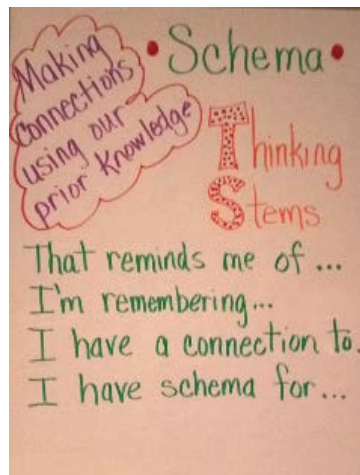 • Schema •
Making
connections
using our
prior knowledge
Thinking
Stems
That reminds me of ...
I'm remembering...
I have a connection to.
I have schema for...